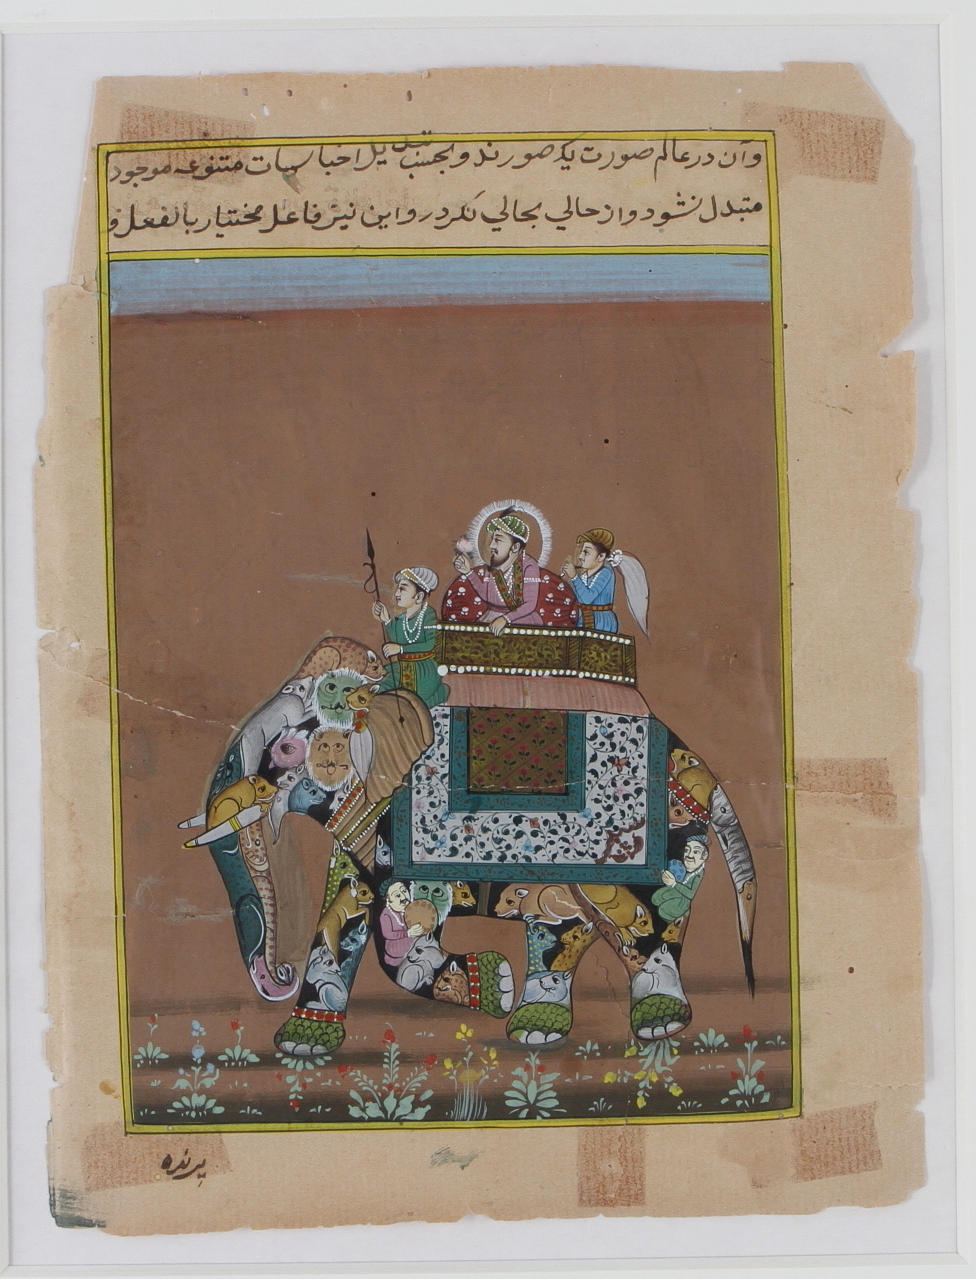 وآن در عالم صورت یک صورند و بحسب احبا سیات متنوعه موجود
متبدل نشود و از حالي بحالي نکردد و این نیز فاعل مختیار بالفعل و
پرنده